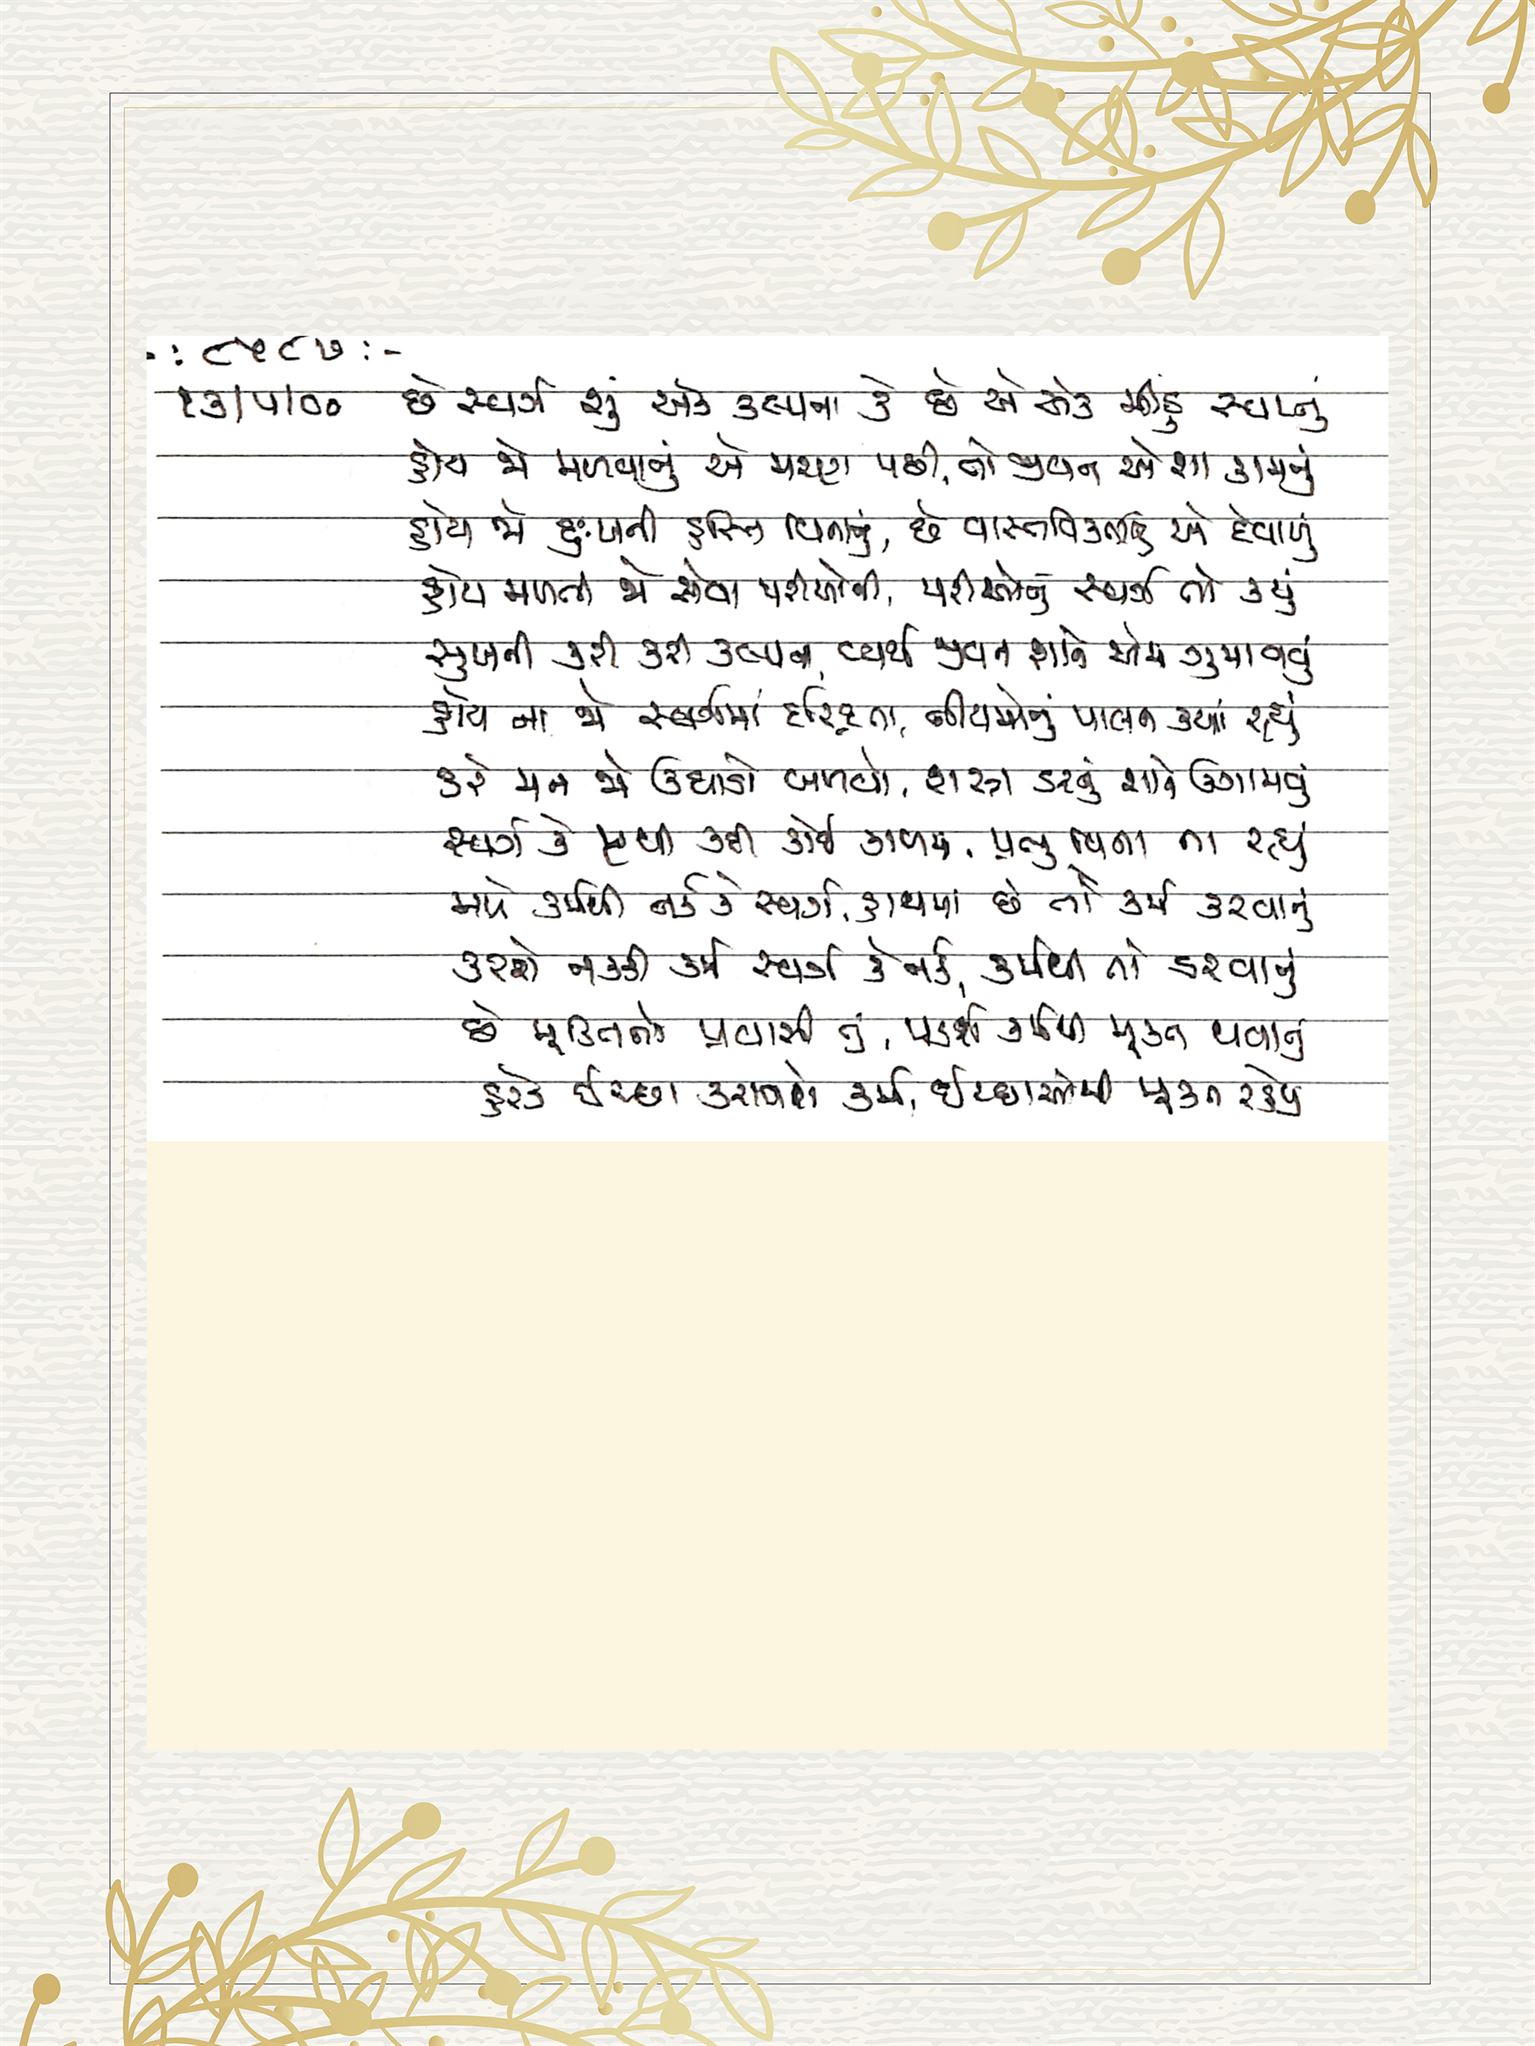 -: ૮૫૮૭ :-
૧૩/૫/૦૦ છે સ્વર્ગ શું એક કલ્પના કે છે એ એક મીઠું સ્વપ્નું
હોય જો મળવાનું એ મરણ પછી, તો જીવન એ શા કામનું
હોય જો દુઃખની હસ્તિ વિનાનું, છે વાસ્તવિકતાનું એ દેવાળું
હોય મળતી જો સેવા પરીઓની, પરીઓનું સ્વર્ગ તો કયું
સુખની કરી કરી કલ્પના, વ્યર્થ જીવન શાને એમ ગુમાવવું
હોય ના જો સ્વર્ગમાં દરિદ્રતા, નીયમોનું પાલન ક્યાં રહ્યું
કરે મન જો ઉઘાડો બળવો, શસ્ત્ર કરવું શાને ઉગામવું
સ્વર્ગ કે પૃથ્વી કદી કોઈ કાળમાં, પ્રભુ વિના ના રહ્યું
મળે કર્મથી નર્ક કે સ્વર્ગ, હાથમાં છે તો કર્મ કરવાનું
કરશે નક્કી કર્મ સ્વર્ગ કે નર્ક, કર્મથી તો ડરવાનું
છે મૂક્તિનો પ્રવાસી તું, પડશે કર્મથી મૂક્ત થવાનું
હરેક ઈચ્છા કરાવશે કર્મ, ઈચ્છાઓથી મૂક્ત રહેવું